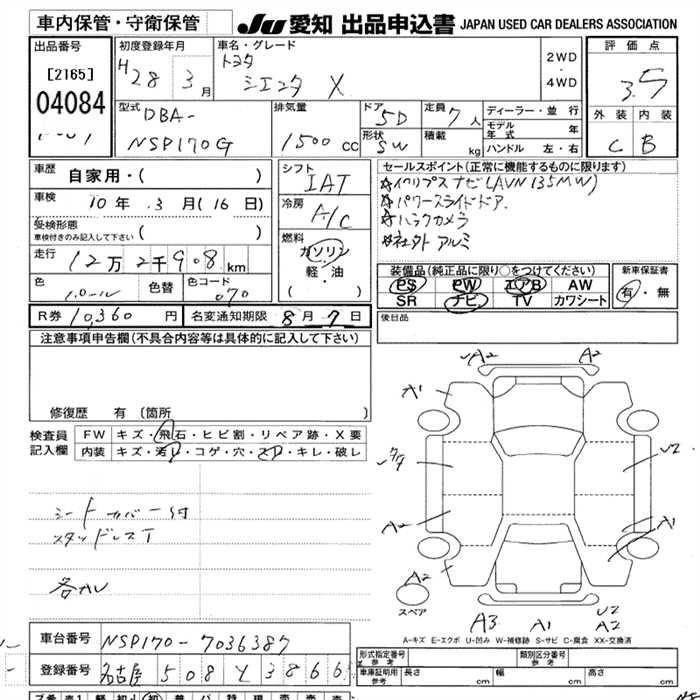 車内保管・守衛保管
JU 愛知 出品申込書 JAPAN USED CAR DEALERS ASSOCIATION
出品番号
[2165]
04084
初度登録年月
H28 3月
車名・グレード
トヨタ
シエンタ X
2WD
・
4WD
評価点
3.5
外装 内装
C B
型式
DBA-
NSP170G
排気量
1500 cc
ドア 5D
形状 SW
定員 7人
積載 kg
ディーラー・並行
モデル年式 年
ハンドル 左・右
車歴
自家用・( )
車検
10年 3月(16日)
受検形態
車検付きのみ記入して下さい ( )
走行
12万2千908km
色
色替
色コード
070
シフト
IAT
冷房
A/C
燃料
ガソリン
軽・油
( )
セールスポイント(正常に機能するものに限ります)
☆イクリプス ナビ(AVN 135MW)
☆パワースライドドア.
☆バックカメラ
☆社外アルミ
装備品(純正品に限り○をつけてください)
PS PW エアB AW
SR ナビ TV カワシート
新車保証書
有・無
R券 10,360 円
名変通知期限 8月7日
後日品
注意事項申告欄(不具合内容等は具体的に記入して下さい)
修復歴 有〔箇所 〕
検査員記入欄
FW キズ・飛石・ヒビ割・リペア跡・X要
内装 キズ・汚レ・コゲ・穴・スレ・キレ・破レ
シートカバー付
スタッドレスT
各カレ
A2 A2
A1
U2
A2 A1
A2
スペア
A3 A1 U2
A2
A-キズ E-エクボ U-凹み W-補修跡 S-サビ C-腐食 XX-交換済
車台番号 NSP170-7036387
登録番号 名古屋 508
形式指定番号
参考
類別区分番号
参考
車庫証明用
参考
長さ cm 幅 cm 高さ cm